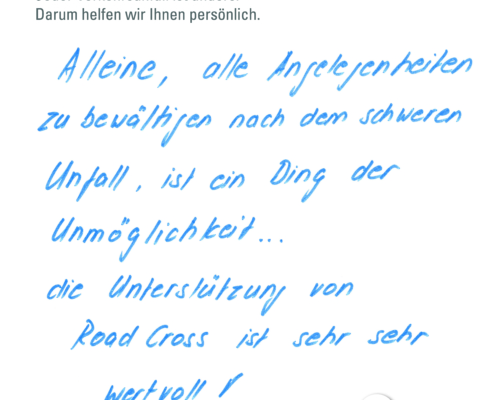 Darum helfen wir Ihnen persönlich.
Alleine, alle Angelegenheiten
zu bewältigen nach dem schweren
Unfall, ist ein Ding der
Unmöglichkeit...
die Unterstützung von
Road Cross ist sehr sehr
wertvoll!